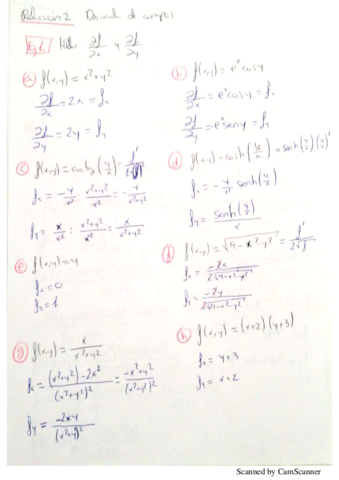 Relación 2 Derivada de campos
Ej.1 Hallar ∂f/∂x y ∂f/∂y
a) f(x,y) = x²+y²
∂f/∂x = 2x = fx
∂f/∂y = 2y = fy
b) f(x,y) = eˣ cos y
∂f/∂x = eˣ cos y = fx
∂f/∂y = eˣ sen y = fy
c) f(x,y) = arctg (y/x) =
fx = -y/x² : (x²+y²)/x² = -y/(x²+y²)
fy = x/x² : (x²+y²)/x² = x/(x²+y²)
d) f(x,y) = cosh(y/x) = senh(y/x)(y/x)'
fx = -y/x² senh(y/x)
fy = senh(y/x)/x
e) f(x,y) = y
fx = 0
fy = 1
f) f(x,y) = √(9-x²-y²) = f'/2√f
fx = -2x/2√(9-x²-y²)
fy = -2y/2√(9-x²-y²)
g) f(x,y) = x/(x²+y²)
fx = ((x²+y²)-2x²)/(x²+y²)² = (-x²+y²)/(x²+y²)²
fy = -2xy/(x²+y²)²
h) f(x,y) = (x+2)(y+3)
fx = y+3
fy = x+2
Scanned by CamScanner